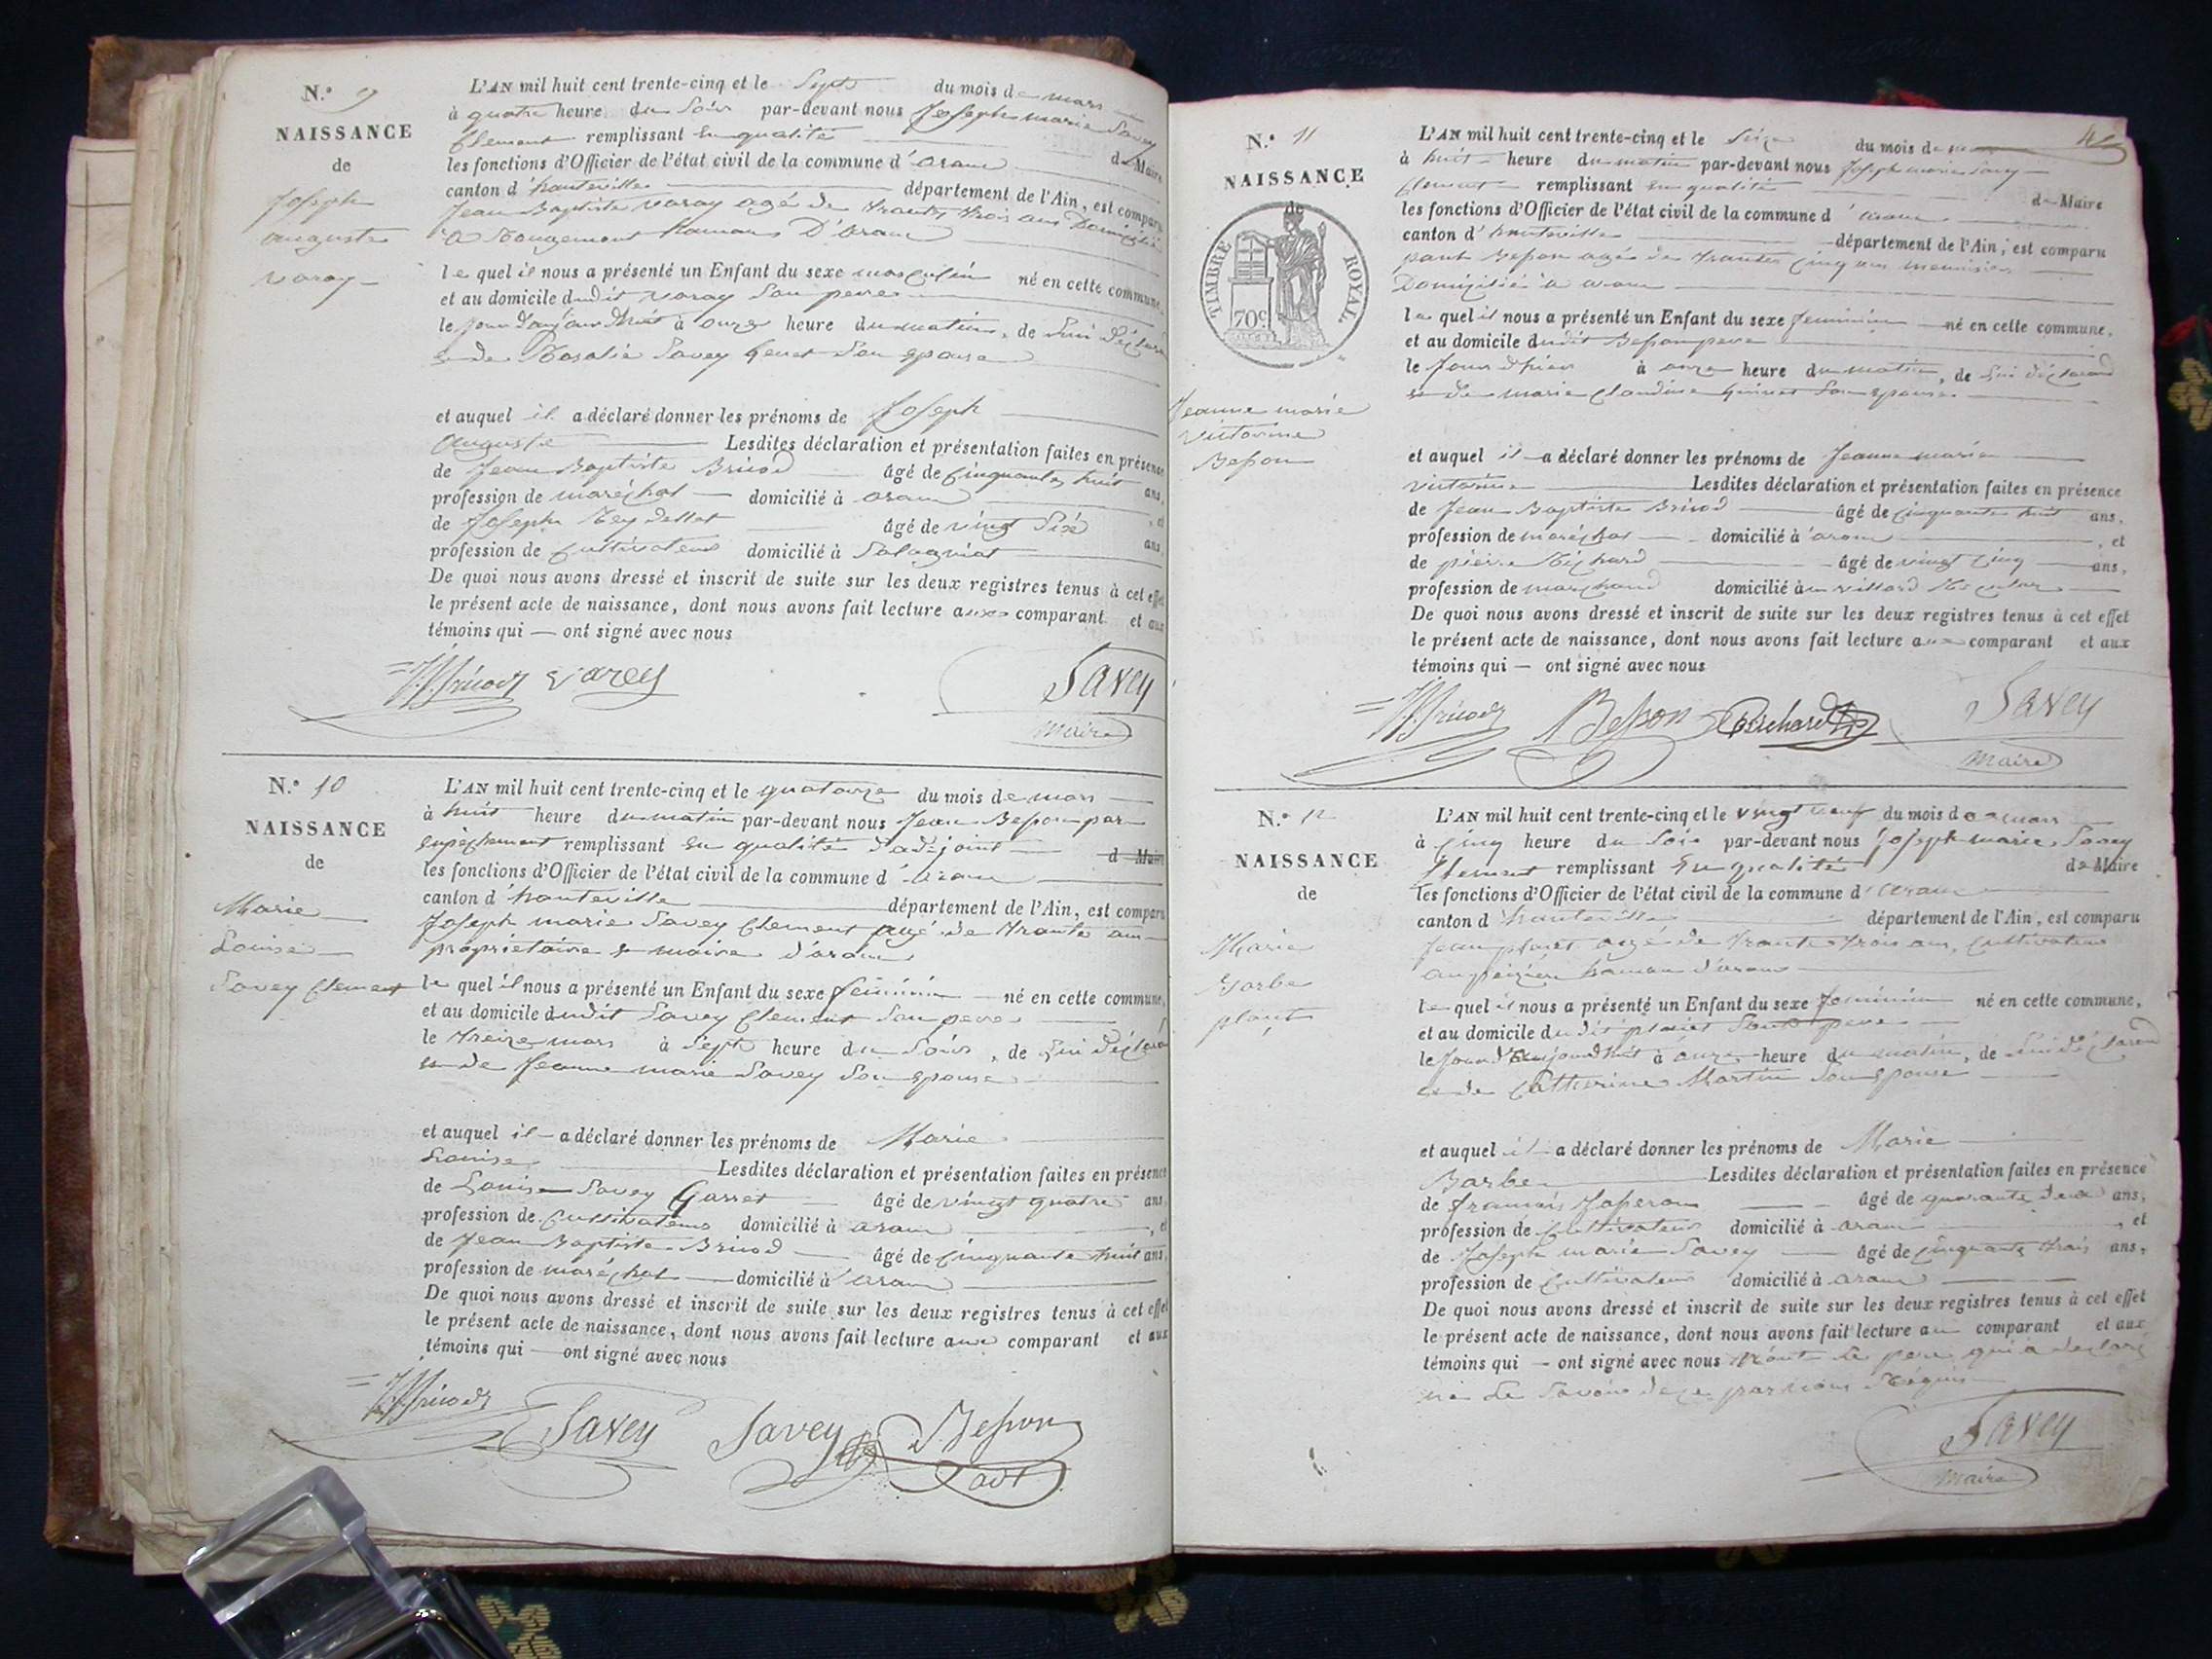 N.º 9
NAISSANCE
de
Joseph
auguste
varay
L'AN mil huit cent trente-cinq et le Sept du mois de mars
à quatre heure du Soir par-devant nous Joseph marie Savey
Clement remplissant En qualité de Maire
les fonctions d'Officier de l'état civil de la commune d'aranc
canton d'hauteville département de l'Ain, est comparu
Jean Baptiste varay agé de trante trois ans Domicilié
a Rougemont hamau D'aranc
le quel il nous a présenté un Enfant du sexe masculin né en cette commune,
et au domicile dudit varay Son pere
le Jour d'aujourd'huit à onze heure du matin, de lui déclarand
et de Rosalie Savey Genet Son epouse
et auquel il a déclaré donner les prénoms de Joseph
auguste Lesdites déclaration et présentation faites en présence
de Jean Baptiste Bricod âgé de Cinquante huit ans,
profession de maréchal domicilié à aranc, et
de Joseph Reydellet âgé de vingt Six ans,
profession de Cultivateur domicilié à
De quoi nous avons dressé et inscrit de suite sur les deux registres tenus à cet effet
le présent acte de naissance, dont nous avons fait lecture aux comparant et aux
témoins qui — ont signé avec nous
JB Bricod varey Savey
Maire
N.º 10
NAISSANCE
de
Marie
Louise
Savey Clement
L'AN mil huit cent trente-cinq et le quatorze du mois de mars
à huit heure du matin par-devant nous Jean Besson par
enpéchement remplissant En qualité d'adjoint d Maire
les fonctions d'Officier de l'état civil de la commune d'aranc
canton d'hauteville département de l'Ain, est comparu
Joseph marie Savey Clement agé de trante ans
propriétaire & maire d'aranc
le quel il nous a présenté un Enfant du sexe feminin né en cette commune,
et au domicile dudit Savey Clement Son pere
le treize mars à Sept heure du Soir, de lui déclarand
et de Jeanne marie Savey Son epouse
et auquel il a déclaré donner les prénoms de Marie
Louise Lesdites déclaration et présentation faites en présence
de Louis Savey Garret âgé de vingt quatre ans,
profession de Cultivateur domicilié à aranc, et
de Jean Baptiste Bricod âgé de Cinquante huit ans,
profession de maréchal domicilié à aranc
De quoi nous avons dressé et inscrit de suite sur les deux registres tenus à cet effet
le présent acte de naissance, dont nous avons fait lecture aux comparant et aux
témoins qui — ont signé avec nous
JB Bricod Savey Savey Besson
adt
N.º 11
NAISSANCE
de
TIMBRE ROYAL.
70c
Jeanne marie
victorine
Besson
L'AN mil huit cent trente-cinq et le Seize du mois de mars
à huit heure du matin par-devant nous Joseph marie Savey
Clement remplissant en qualité de Maire
les fonctions d'Officier de l'état civil de la commune d'aranc
canton d'hauteville département de l'Ain, est comparu
Besson agé de trante Cinq ans menuisier
Domicilié à aranc
le quel il nous a présenté un Enfant du sexe feminin né en cette commune,
et au domicile dudit Besson pere
le Jour d'hier à onze heure du matin, de lui déclarand
et de marie Claudine Son epouse
et auquel il a déclaré donner les prénoms de Jeanne marie
victorine Lesdites déclaration et présentation faites en présence
de Jean Baptiste Bricod âgé de Cinquante huit ans,
profession de maréchal domicilié à aranc, et
de pierre Richard âgé de vingt Cinq ans,
profession de marchand domicilié à
De quoi nous avons dressé et inscrit de suite sur les deux registres tenus à cet effet
le présent acte de naissance, dont nous avons fait lecture aux comparant et aux
témoins qui — ont signé avec nous
JB Bricod Besson Savey
Maire
N.º 12
NAISSANCE
de
Marie
Barbe
L'AN mil huit cent trente-cinq et le vingt neuf du mois de mars
à Cinq heure du Soir par-devant nous Joseph marie Savey
Clement remplissant En qualité de Maire
les fonctions d'Officier de l'état civil de la commune d'aranc
canton d'hauteville département de l'Ain, est comparu
Jean agé de trante trois ans, Cultivateur
hamau d'aranc
le quel il nous a présenté un Enfant du sexe feminin né en cette commune,
et au domicile dudit Son pere
le Jour d'aujourd'huit à onze heure du matin, de lui déclarand
et de Catherine Martin Son epouse
et auquel il a déclaré donner les prénoms de Marie
Barbe Lesdites déclaration et présentation faites en présence
de francois âgé de quarante deux ans,
profession de Cultivateur domicilié à aranc, et
de Joseph marie Savey âgé de Cinquante trois ans,
profession de Cultivateur domicilié à aranc
De quoi nous avons dressé et inscrit de suite sur les deux registres tenus à cet effet
le présent acte de naissance, dont nous avons fait lecture au comparant et aux
témoins qui — ont signé avec nous le pere qui a declaré
ne le Savoir de ce Requis
Savey
Maire